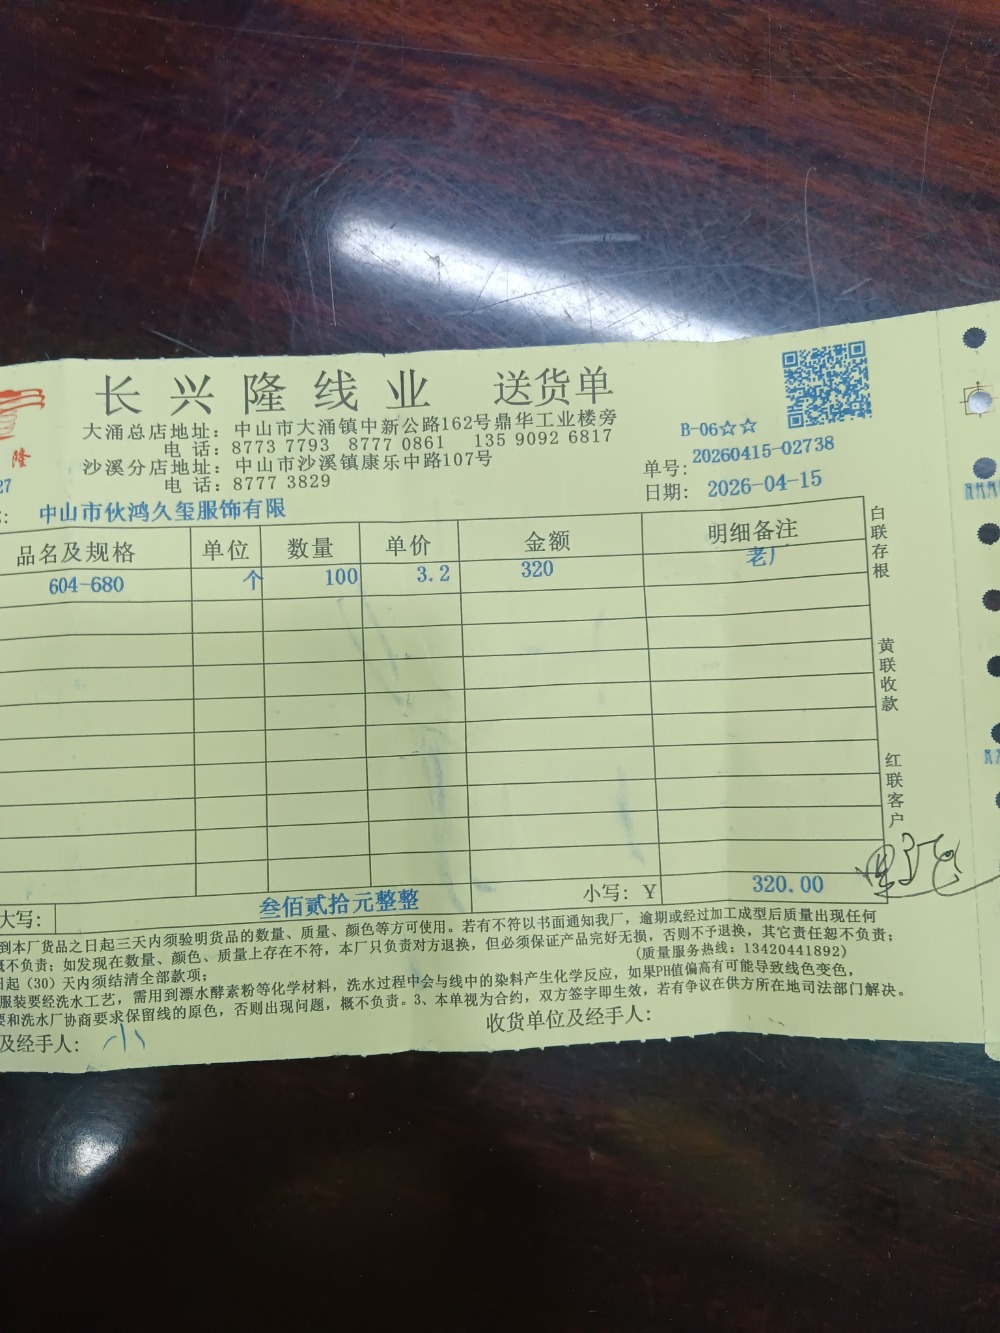 长兴隆线业 送货单
大涌总店地址：中山市大涌镇中新公路162号鼎华工业楼旁
电 话：8773 7793 8777 0861 135 9092 6817
沙溪分店地址：中山市沙溪镇康乐中路107号
电 话：8777 3829
B-06☆☆
单号：20260415-02738
日期：2026-04-15
隆
27
中山市伙鸿久玺服饰有限
品名及规格 单位 数量 单价 金额 明细备注
604-680 个 100 3.2 320 老厂
白联存根
黄联收款
红联客户
大写： 叁佰贰拾元整整 小写：￥ 320.00
到本厂货品之日起三天内须验明货品的数量、质量、颜色等方可使用。若有不符以书面通知我厂，逾期或经过加工成型后质量出现任何
概不负责；如发现在数量、颜色、质量上存在不符，本厂只负责对方退换，但必须保证产品完好无损，否则不予退换，其它责任恕不负责；
日起（30）天内须结清全部款项； (质量服务热线：13420441892)
服装要经洗水工艺，需用到漂水酵素粉等化学材料，洗水过程中会与线中的染料产生化学反应，如果PH值偏高有可能导致线色变色，
要和洗水厂协商要求保留线的原色，否则出现问题，概不负责。3、本单视为合约，双方签字即生效，若有争议在供方所在地司法部门解决。
及经手人： 小 收货单位及经手人：